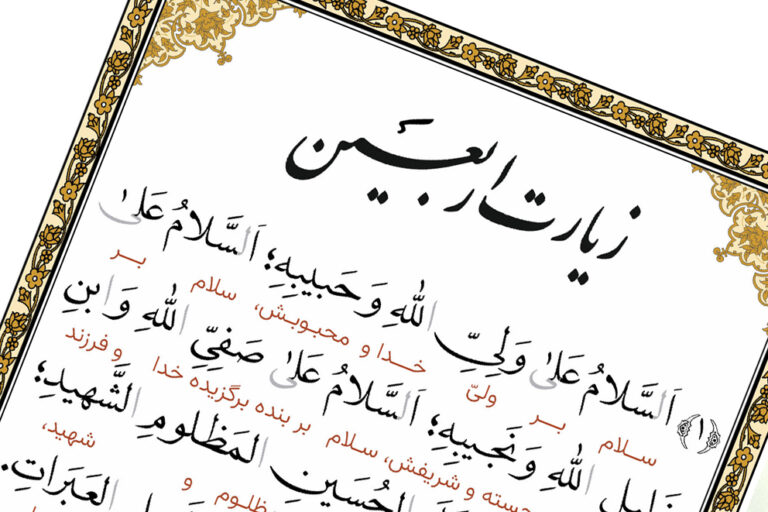 زیارت اربعین
﴿۱﴾ اَلسَّلامُ عَلىٰ وَلِىِّ اللّٰهِ وَ حَبیبِهِ؛ اَلسَّلامُ عَلىٰ
سلام بر ولیّ خدا و محبوبش، سلام بر
خَلیلِ اللّٰهِ وَ نَجیبِهِ؛ اَلسَّلامُ عَلىٰ صَفِىِّ اللّٰهِ وَ ابنِ
و شریفش، سلام بر بنده برگزیده خدا و فرزند
الحُسَینِ المَظلومِ الشَّهیدِ؛
شهید،
العَبَراتِ.